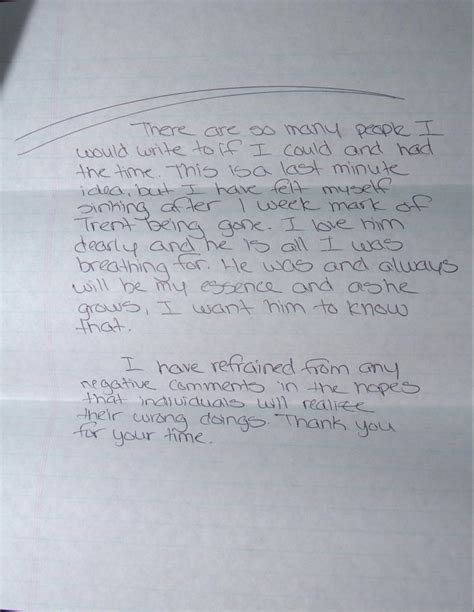 There are so many people I
would write to if I could and had
the time. This is a last minute
idea, but I have felt myself
sinking after 1 week mark of
Trent being gone. I love him
dearly and he is all I was
breathing for. He was and always
will be my essence and as he
grows, I want him to know
that.
I have refrained from any
negative comments in the hopes
that individuals will realize
their wrong doings. Thank you
for your time.